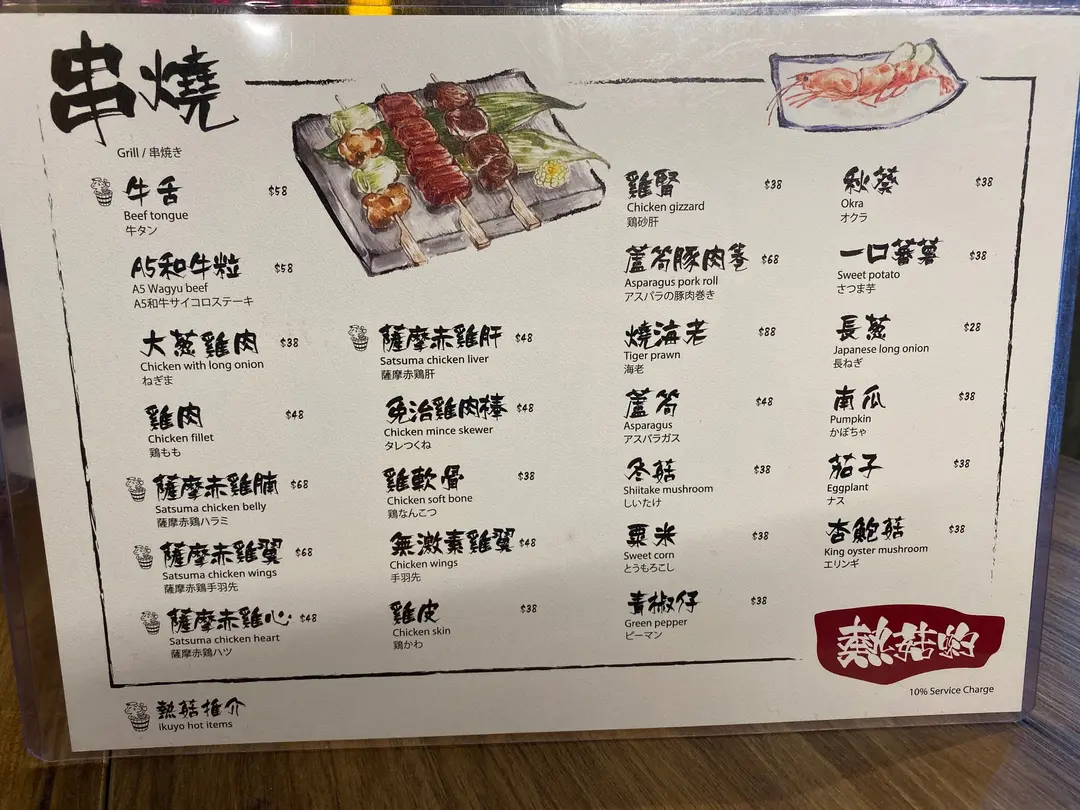 串燒
Grill / 串焼き
牛舌 $58
Beef tongue
牛タン
A5和牛粒 $58
A5 Wagyu beef
A5和牛サイコロステーキ
大葱雞肉 $38
Chicken with long onion
ねぎま
雞肉 $48
Chicken fillet
鶏もも
薩摩赤雞腩 $68
Satsuma chicken belly
薩摩赤鶏ハラミ
薩摩赤雞翼 $68
Satsuma chicken wings
薩摩赤鶏手羽先
薩摩赤雞心 $48
Satsuma chicken heart
薩摩赤鶏ハツ
薩摩赤雞肝 $48
Satsuma chicken liver
薩摩赤鶏肝
免治雞肉棒 $48
Chicken mince skewer
タレつくね
雞軟骨 $38
Chicken soft bone
鶏なんこつ
無激素雞翼 $48
Chicken wings
手羽先
雞皮 $38
Chicken skin
鶏かわ
雞腎 $38
Chicken gizzard
鶏砂肝
蘆筍豚肉卷 $68
Asparagus pork roll
アスパラの豚肉巻き
燒海老 $88
Tiger prawn
海老
蘆筍 $48
Asparagus
アスパラガス
冬菇 $38
Shiitake mushroom
しいたけ
粟米 $38
Sweet corn
とうもろこし
青椒仔 $38
Green pepper
ピーマン
秋葵 $38
Okra
オクラ
一口蕃薯 $38
Sweet potato
さつま芋
長葱 $28
Japanese long onion
長ねぎ
南瓜 $38
Pumpkin
かぼちゃ
茄子 $38
Eggplant
ナス
杏鮑菇 $38
King oyster mushroom
エリンギ
熱菇推介
ikuyo hot items
熱菇喲
10% Service Charge